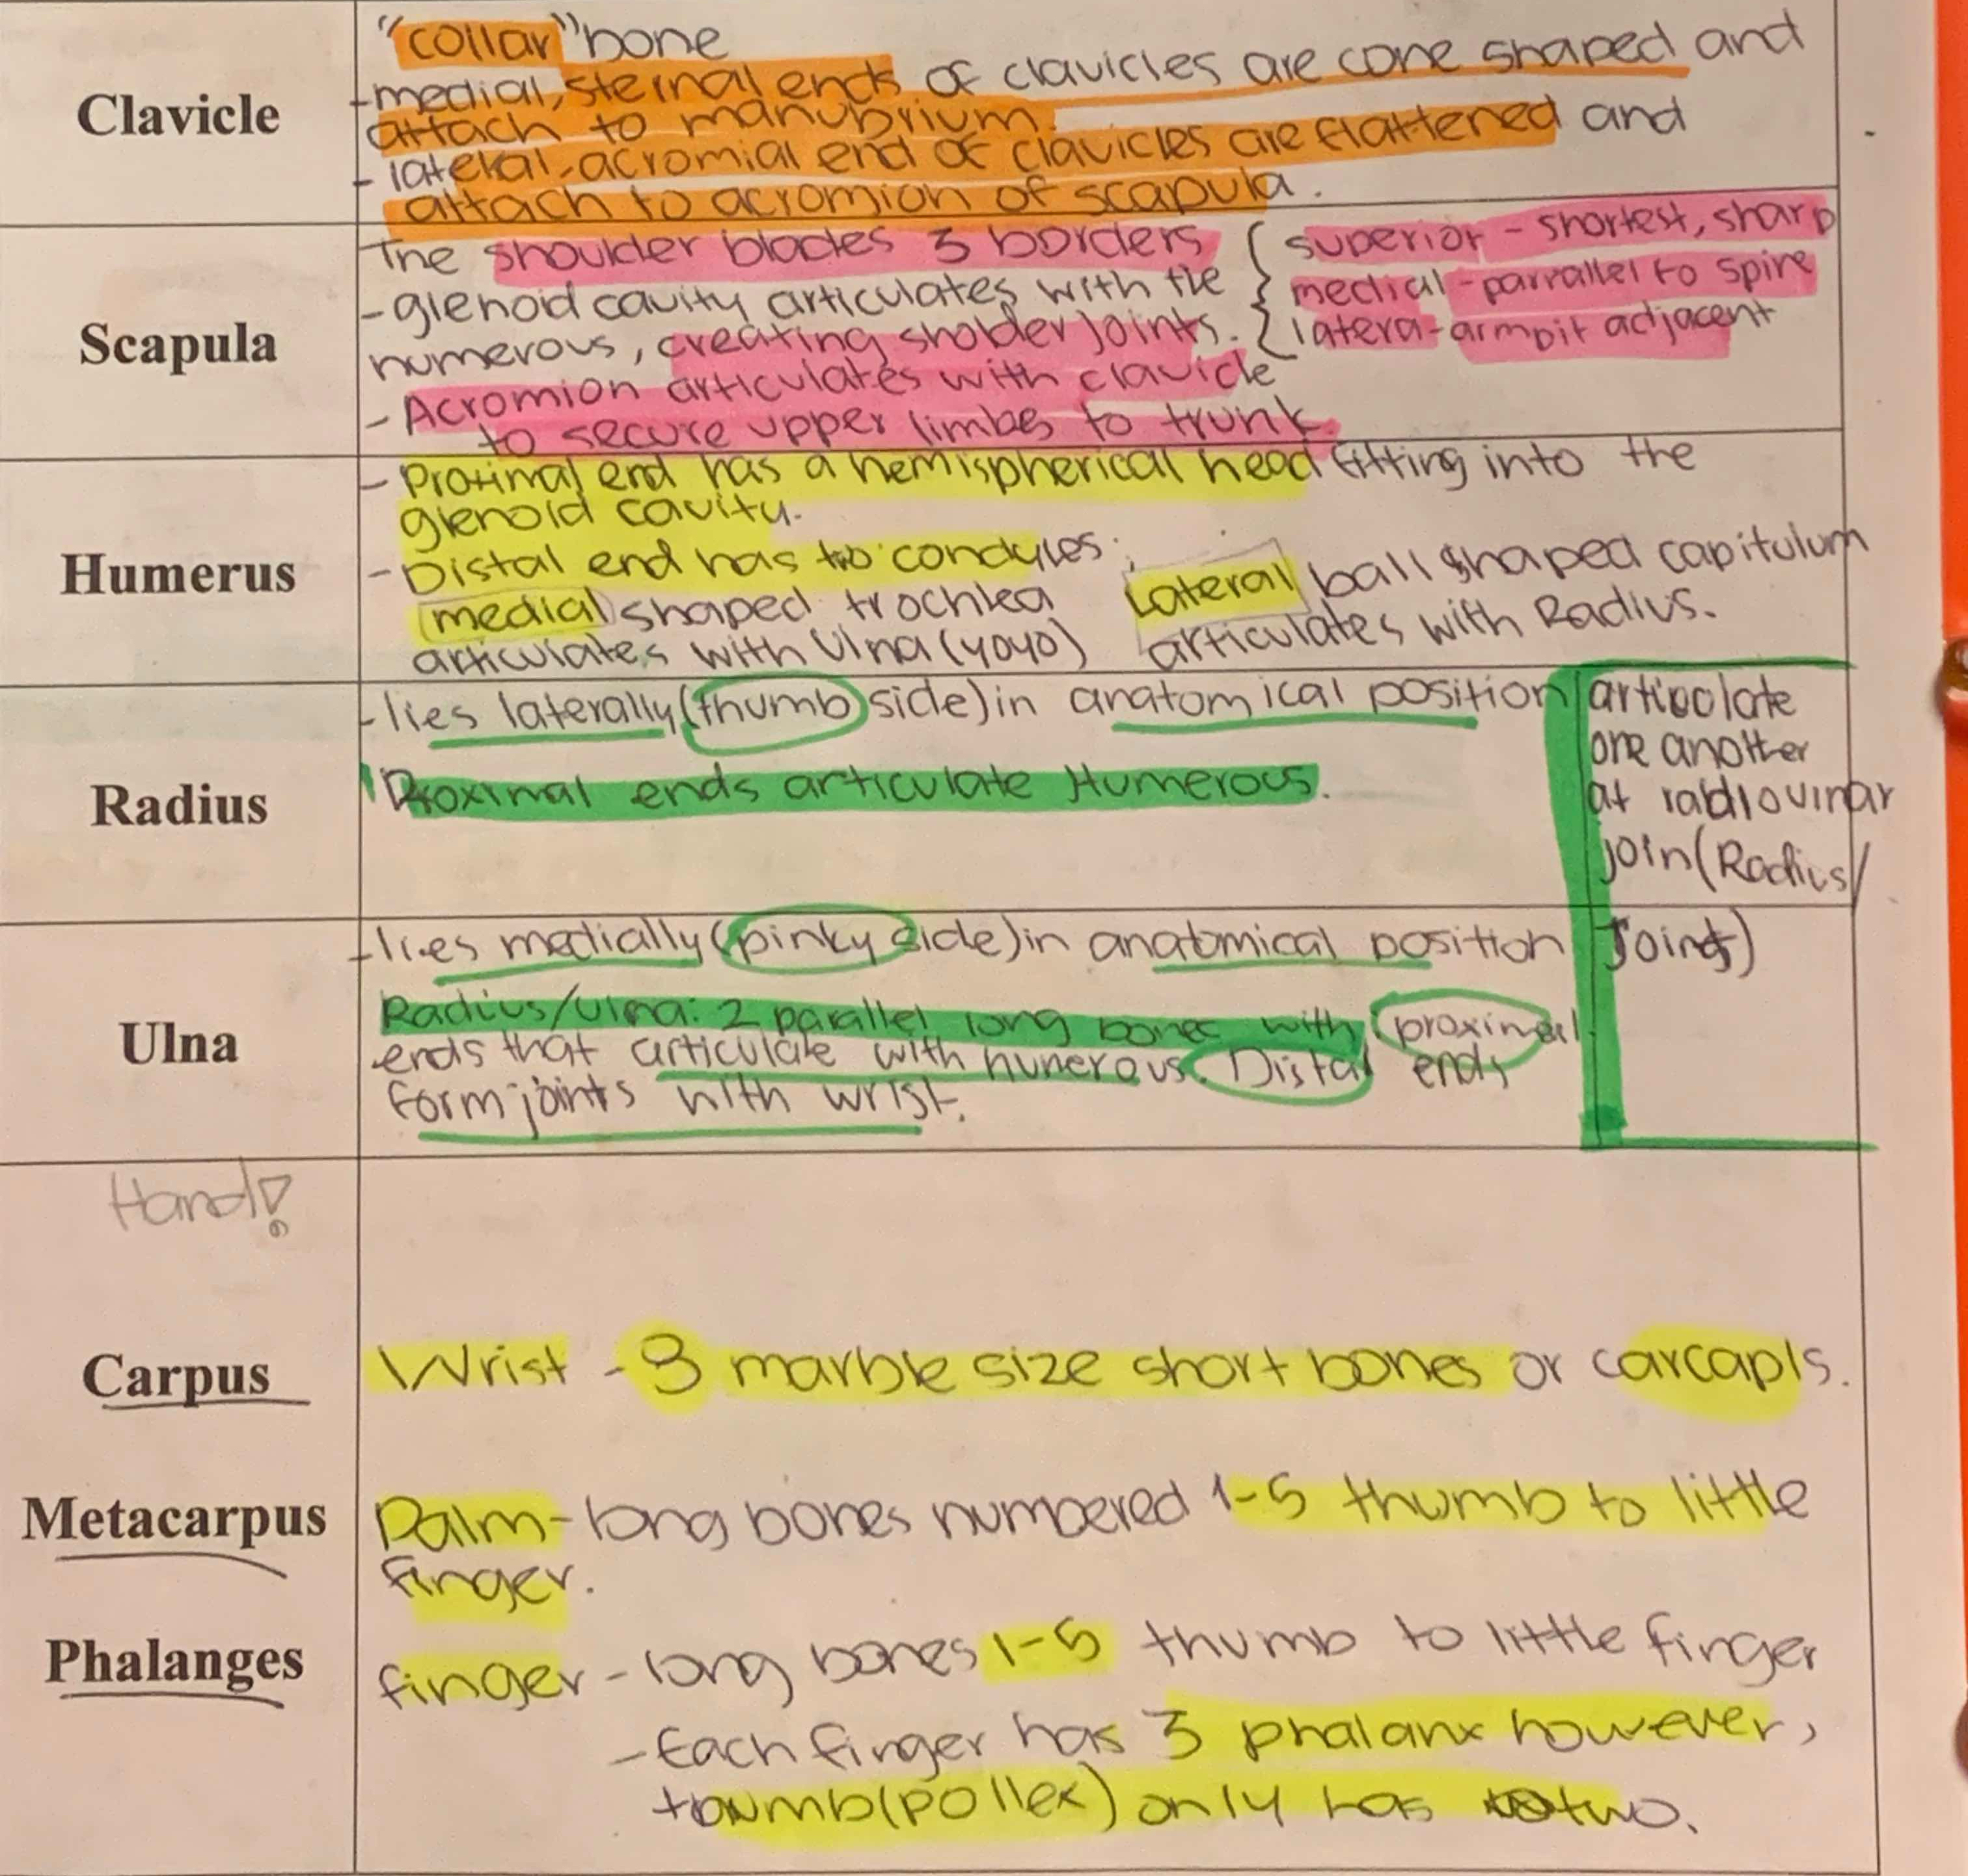 Clavicle
"collar" bone
-medial, sternal ends of clavicles are cone shaped and
attach to manubrium.
- lateral, acromial end of clavicles are flattened and
attach to acromion of scapula.
Scapula
The shoulder blades 3 borders
- glenoid cavity articulates with the
numerous, creating sholder joints.
- Acromion articulates with clavicle
to secure upper limbes to trunk.
superior - shortest, sharp
medial - parrallel to spine
latera - armpit adjacent
Humerus
- Proximal end has a hemispherical head fitting into the
glenoid cavity.
- Distal end has two condyles.
medial shaped trochlea
articulates with Ulna (yoyo)
Lateral ball shaped capitulum
articulates with Radius.
Radius
- lies laterally (thumb side) in anatomical position
Proximal ends articulate Humerous.
articolate
one another
at radioulnar
join (Radius/
Joints)
Ulna
- lies medially (pinky side) in anatomical position
Radius/Ulna: 2 parallel long bones with proximal
ends that articulate with humerous. Distal ends
form joints with wrist.
Hand!
Carpus
Wrist - 8 marble size short bones or carcapls.
Metacarpus
Palm - long bones numbered 1-5 thumb to little
finger.
Phalanges
finger - long bones 1-5 thumb to little finger
- Each finger has 3 phalanx however,
thumb (pollex) only has two.